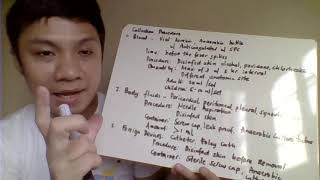 Collection Procedure
1. Blood - Vial Aerobic Anaerobic bottle
w/ Anticoagulated w/ SPS
Time: Before the fever spikes
Procedure: Disinfect skin alcohol, povidone, chlorhexidine
Quantity: 2 hr interval
Different anatomic site
Adult: 20 ml
children: 5-10 ml/set
2. Body fluids: Pericardial, peritoneal, pleural, synovial
Procedure: Needle Aspiration
Disinfect skin
Container: Screw cap, leak proof, Anaerobic
Amount: > 1 mL
3. Foreign Devices: Catheter Foley Cath
Procedure: Disinfect skin before Removal
Container: Sterile Screw cap, Anaerobic